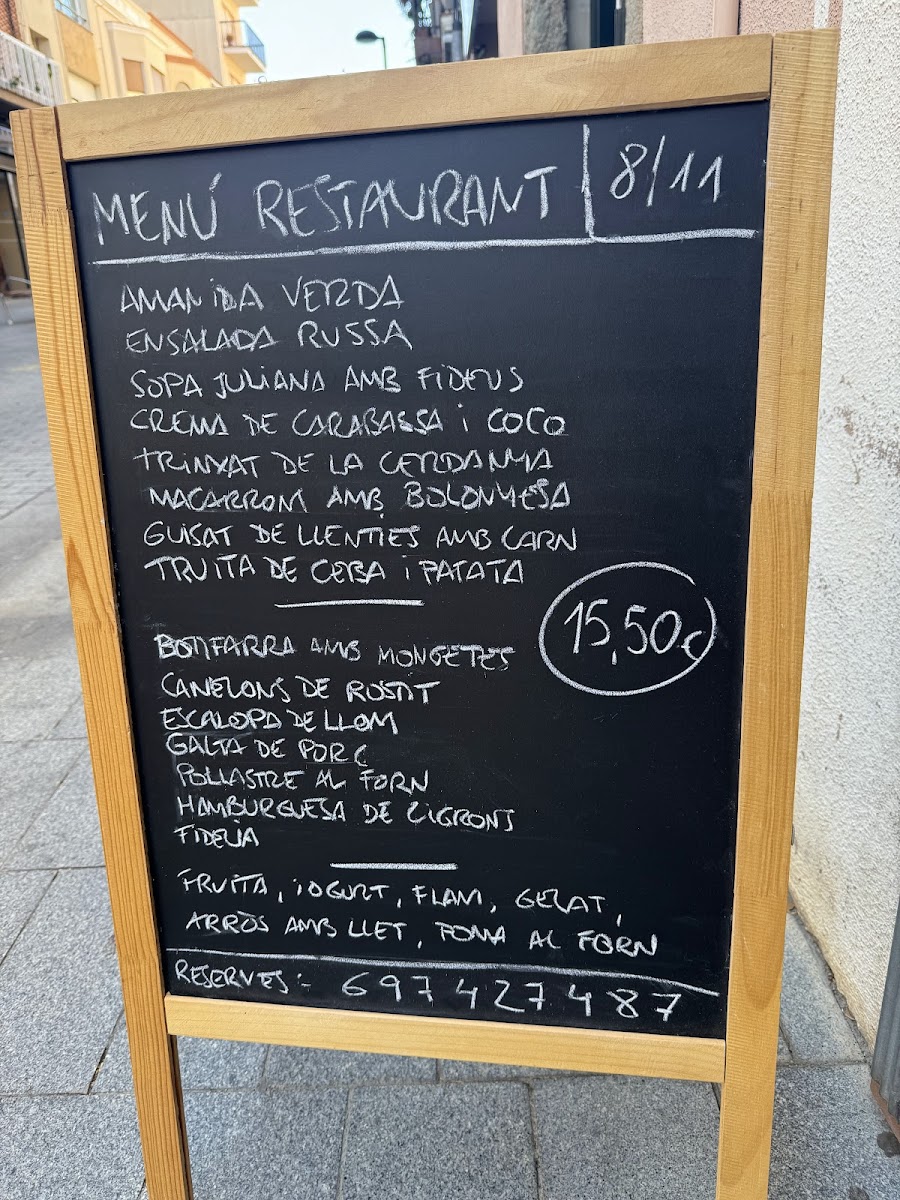 MENÚ RESTAURANT 8/11
AMANIDA VERDA
ENSALADA RUSSA
SOPA JULIANA AMB FIDEUS
CREMA DE CARABASSA i COCO
TRINXAT DE LA CERDANYA
MACARRONS AMB BOLONYESA
GUISAT DE LLENTIES AMB CARN
TRUITA DE CEBA i PATATA
15,50€
BOTIFARRA AMB MONGETES
CANELONS DE ROSTIT
ESCALOPA DE LLOM
GALTA DE PORC
POLLASTRE AL FORN
HAMBURGUESA DE CIGRONS
FIDEUA
FRUITA, iOGURT, FLAM, GELAT,
ARRÒS AMB LLET, POMA AL FORN
RESERVES:- 697427487